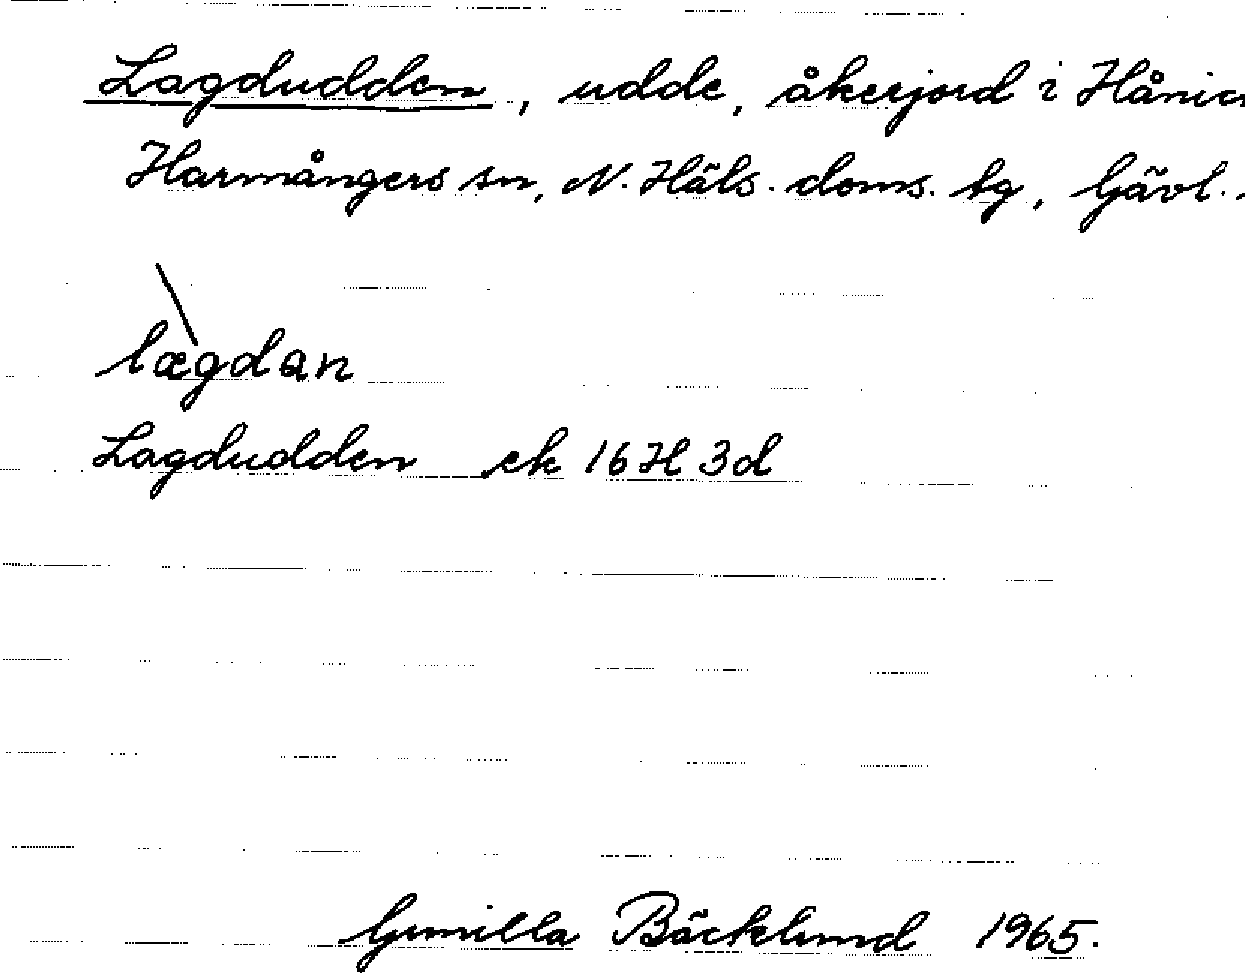 Lagdudden, udde, åkerjord i Hånick
Harmångers sn, N. Häls. doms. tg, Gävl.
lægdan
Lagdudden ek 16H 3d
Gunilla Bäcklund 1965.